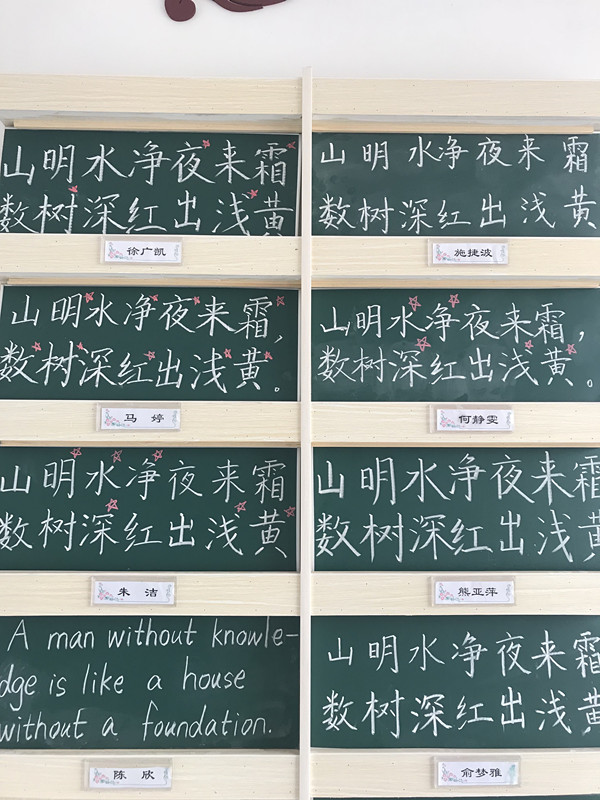 山明水净夜来霜
数树深红出浅黄
徐广凯
山明水净夜来霜
数树深红出浅黄
施捷波
山明水净夜来霜，
数树深红出浅黄。
马婷
山明水净夜来霜，
数树深红出浅黄。
何静雯
山明水净夜来霜
数树深红出浅黄
朱洁
山明水净夜来霜
数树深红出浅黄
熊亚萍
A man without knowle-
dge is like a house
without a foundation.
陈欣
山明水净夜来霜
数树深红出浅黄
俞梦雅